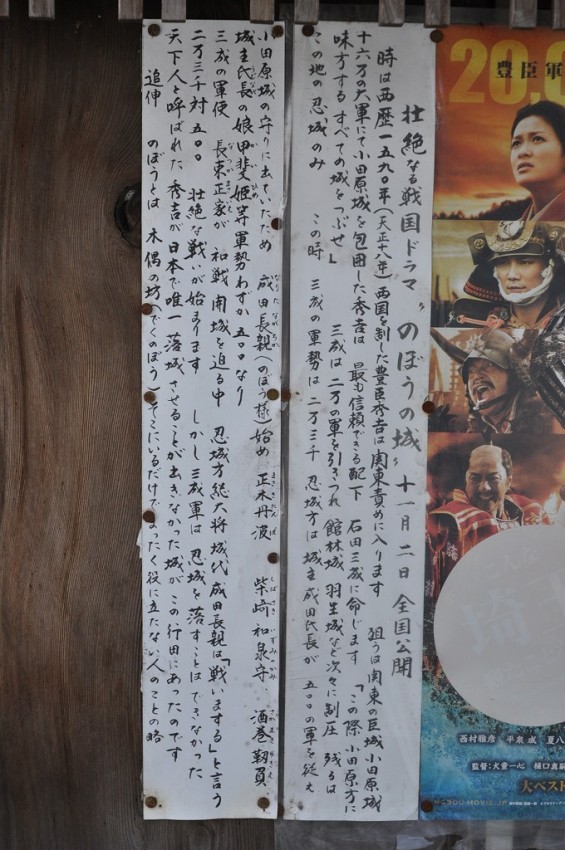 壮絶なる戦国ドラマ〝のぼうの城〟十一月二日全国公開
時は西歴一五九〇年(天正十八年)西国を制した豊臣秀吉は関東責めに入ります 狙うは関東の巨城小田原城
十六万の大軍にて小田原城を包囲した秀吉は 最も信頼できる配下 石田三成に命じます 「この際 小田原方に
味方する すべての城をつぶせ」 三成は二万の軍を引きつれ 館林城 羽生城など次々に制圧 残るは
この地の忍城のみ この時 三成の軍勢は二万三千 忍城方は城主成田氏長が 五〇〇の軍を従え
小田原城の守りに出ていたため 成田長親(のぼう様)始め 正木丹波 柴崎和泉守 酒巻靭負
城主氏長の娘甲斐姫等軍勢わずか五〇〇なり
三成の軍使 長束正家が 和戦開城を迫る中 忍城方総大将城代成田長親は「戦いまする」と言う
二万三千対五〇〇 壮絶な戦いが始まります しかし三成軍は 忍城を落すことはできなかった
天下人と呼ばれた秀吉が日本で唯一落城させることが出きなかった城がこの行田にあったのです
追伸 のぼうとは 木偶の坊(でくのぼう)そこにいるだけでまったく役に立たない人のことの略
20,0
豊臣軍
西村雅彦 平泉成 夏八
監督:犬童一心 樋口真
大ベスト
NOBOU-MOVIE.JP